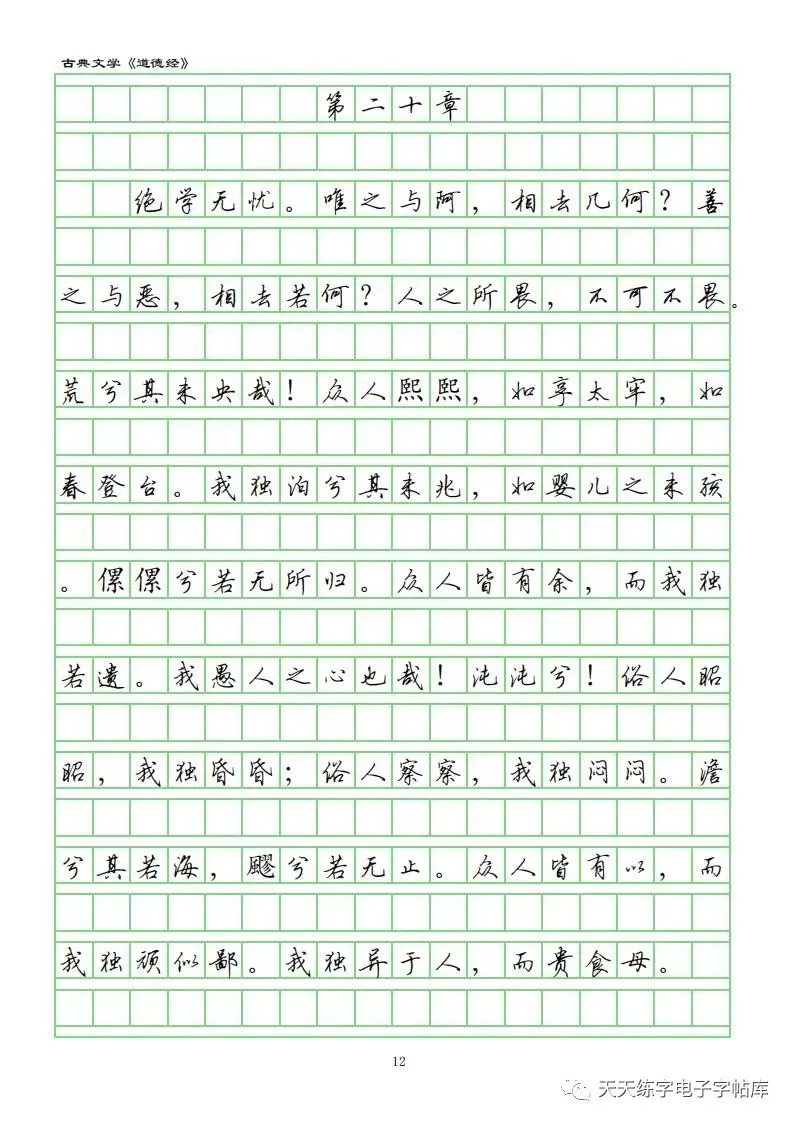 古典文学《道德经》
第二十章
绝学无忧。唯之与阿，相去几何？善
之与恶，相去若何？人之所畏，不可不畏。
荒兮其未央哉！众人熙熙，如享太牢，如
春登台。我独泊兮其未兆，如婴儿之未孩
。傫傫兮若无所归。众人皆有余，而我独
若遗。我愚人之心也哉！沌沌兮！俗人昭
昭，我独昏昏；俗人察察，我独闷闷。澹
兮其若海，飂兮若无止。众人皆有以，而
我独顽似鄙。我独异于人，而贵食母。
12
天天练字电子字帖库